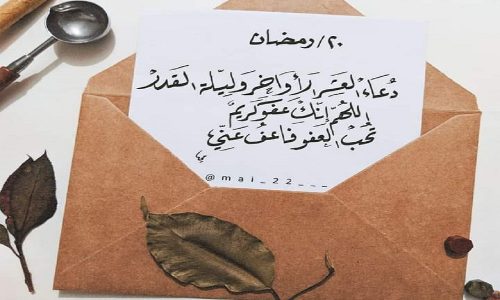 ٢٠/رمضان
دُعَاءْ العَشِر الأَواخِر وَليلة القَدرْ
اللهُمّ إنّكَ عَفوٌ كَريمٌ
تُحبْ العَفو فاعفُ عَنّي
@mai_22___